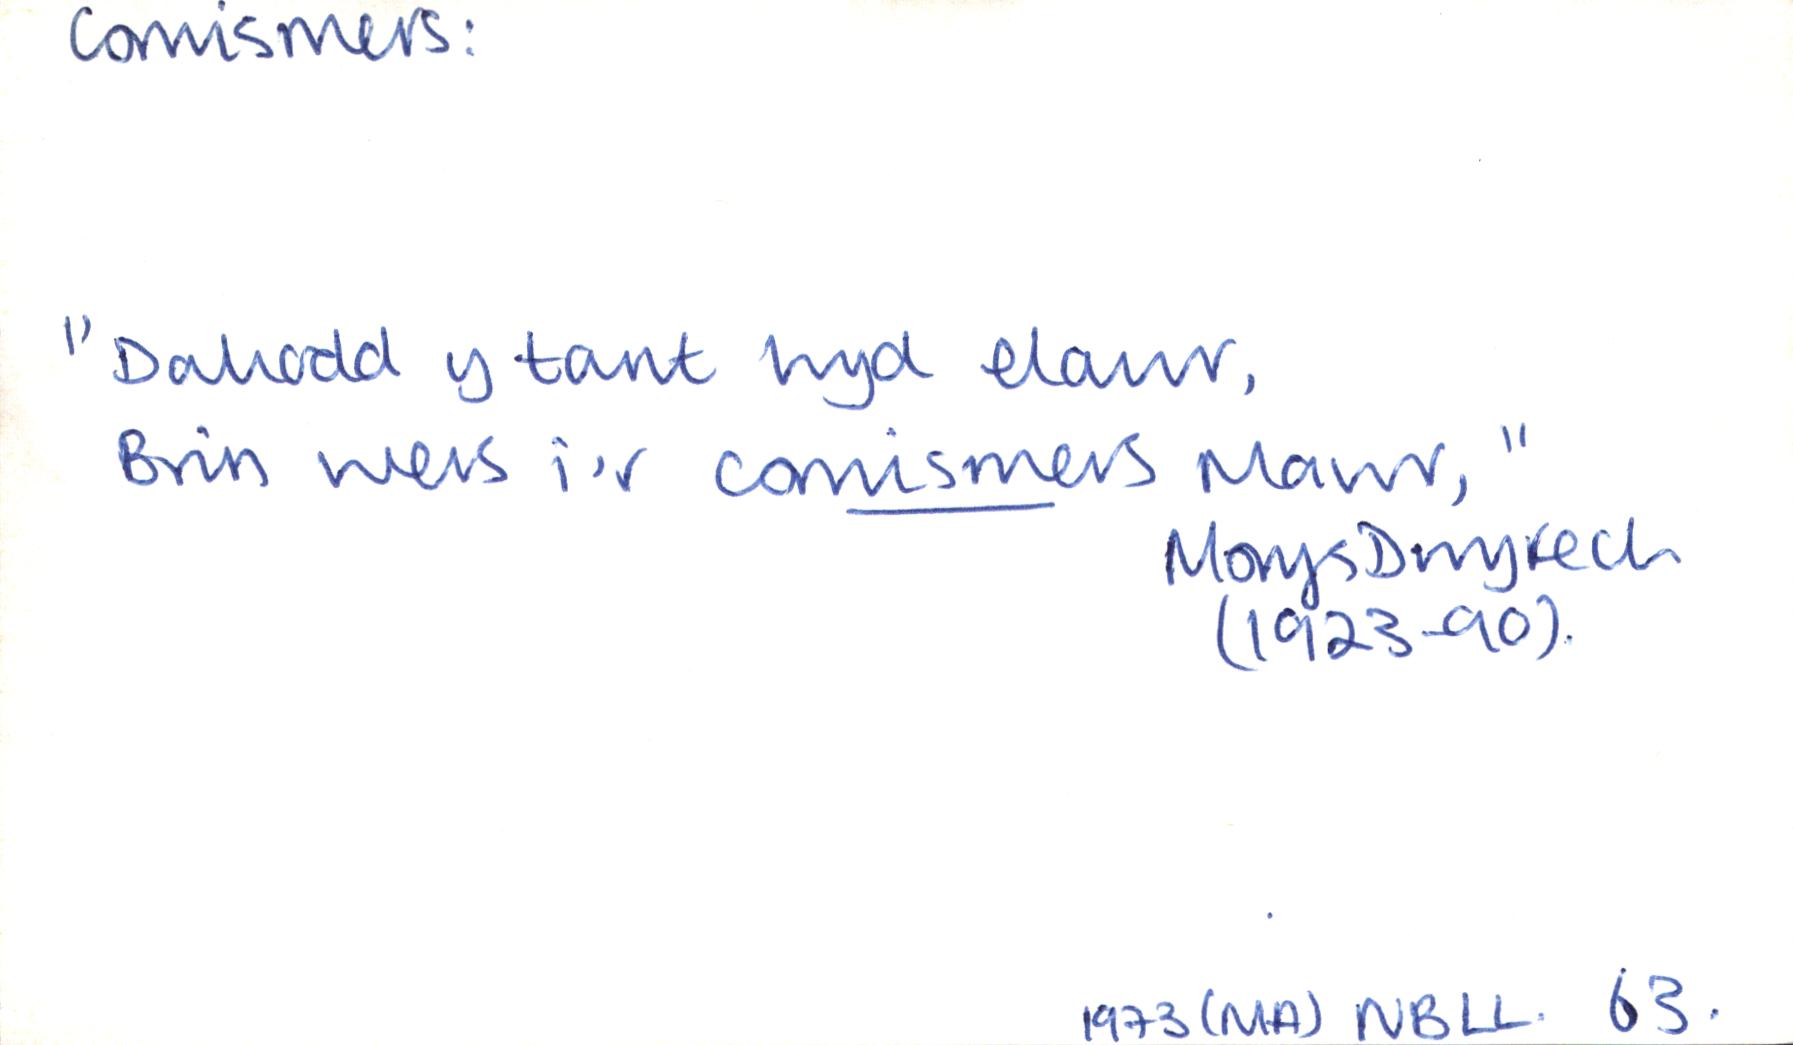 Comismers:
"Daliodd y tant hyd elawr,
Brin wers i'r comismers Mawr,"
Morys Dwyfech
(1923-90).
1973 (MA) NBLL. 63.